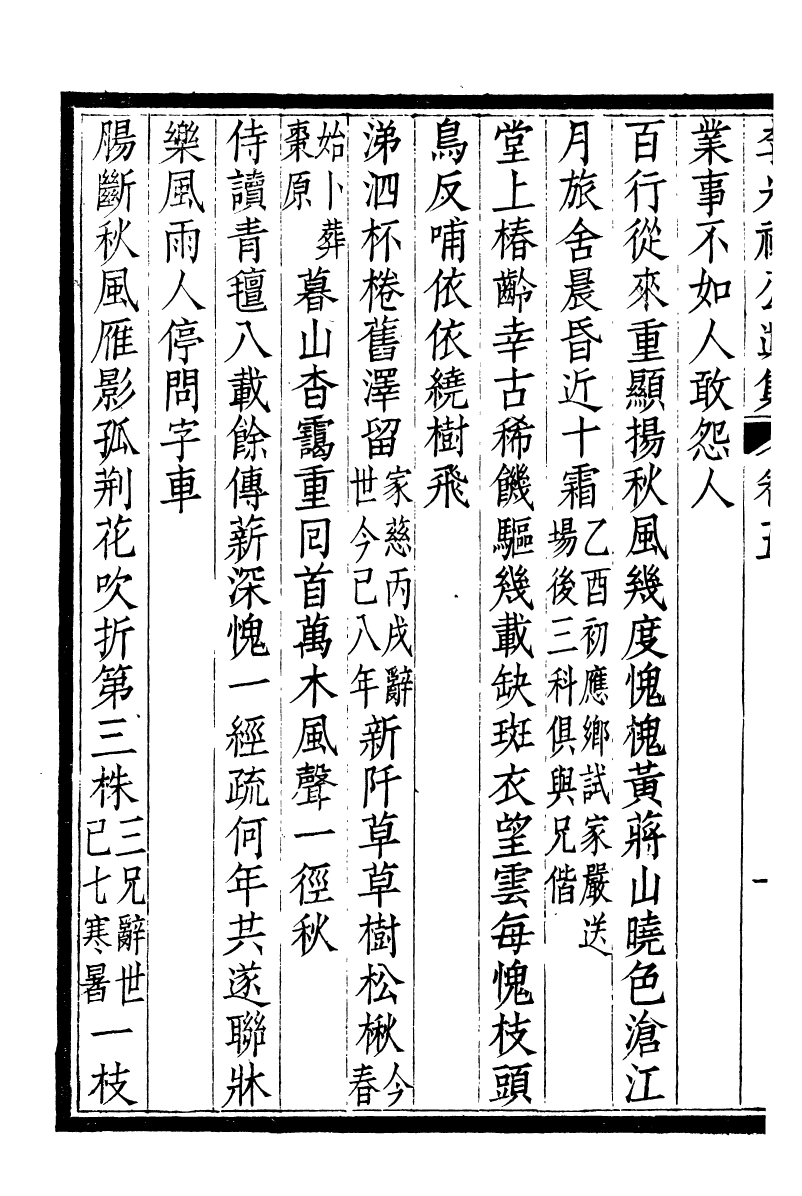 業事不如人敢怨人
百行從來重顯揚秋風幾度愧槐黃蔣山曉色滄江
月旅舍晨昏近十霜乙酉初應鄉試家嚴送場後三科俱與兄偕
堂上椿齡幸古稀饑驅幾載缺斑衣望雲每愧枝頭
鳥反哺依依繞樹飛
涕泗杯棬舊澤留家慈丙戌辭世今已八年新阡草草樹松楸今春
始卜葬棗原暮山杳靄重回首萬木風聲一徑秋
侍讀青氊八載餘傳薪深愧一經疏何年共遂聯牀
樂風雨人停問字車
腸斷秋風雁影孤荆花吹折第三株三兄辭世已七寒暑一枝